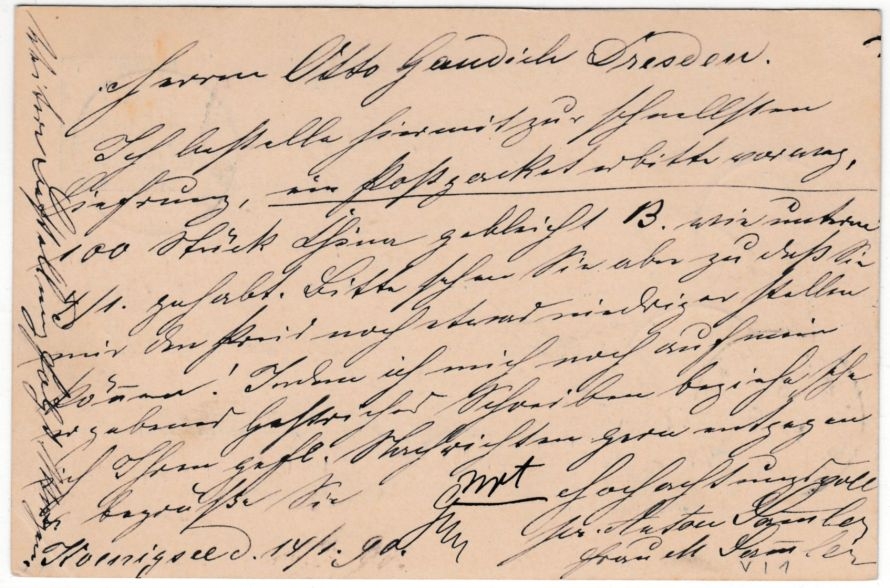 Herrn Otto Gaudich Dresden.
Ich bestelle hiermit zur schnellsten
Lieferung, ein Postpacket erbitte vorweg,
100 Stück China gebleicht B. wie unterm
4/1. gehabt. Bitte sehen Sie aber zu daß Sie
mir den Preis noch etwas niedriger stellen
können! Indem ich mich noch auf mein
ergebenes Gestriges Schreiben beziehe, sehe
ich Ihren gefl. Nachrichten gern entgegen
u. begrüße Sie
Hochachtungsvoll
pr. Anton
Frau M
Koenigsee d. 14/1. 90.
weitere Bestellung folgt
VI 1